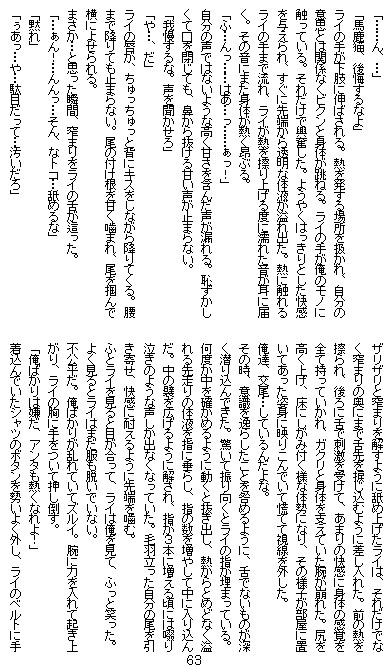 「……ん、…」
「馬鹿猫、後悔するなよ」
ライの手が下肢に伸ばされる。熱を発する場所を扱かれ、自分の
意思とは関係なくビクンと身体が跳ねる。ライの手が俺のモノに
触っている。それだけで興奮した。ようやくはっきりとした快感
を与えられ、すぐに先端から透明な体液が溢れ出た。熱に触れる
ライの手まで流れ、ライが熱を擦り上げる度に濡れた音が耳に届
く。その音にまた身体が熱く昂ぶる。
「ふ…んっ……はあ…っ……あっ！」
自分の声ではないような高く甘さを含んだ声が漏れる。恥ずかし
くて口を閉じても、鼻から抜ける甘い声が止まらない。
「我慢するな。声を聞かせろ」
「や、…だ」
ライの唇が、ちゅっちゅっと背にキスをしながら降りてくる。腰
まで降りても止まらない。尾の付け根を甘く噛まれ、尾を掴んで
横によせられる。
まさか…と思った瞬間、窄まりをライの舌が這った。
「…あん…！…んんっ…そん、なトコ…舐めるな」
「黙れ」
「うあっ…や…駄目だって…汚いだろ」
ザリザリと窄まりを解すように舐め上げたライは、それだけでな
く窄まりの奥にまで舌先を捩じ込むように差し入れた。前の熱を
擦られ、後ろに舌で刺激を受けて、あまりの快感に身体の感覚を
全て持っていかれ、ガクリと身体を支えていた腕が崩れた。尻を
高く上げ、床にしがみ付く様な体勢になり、その様子が部屋に置
いてあった姿身に映りこんでいて慌てて視線を外した。
俺達、交尾…しているんだよな。
その時、意識を逸らしたことを咎めるように、舌でないものが深
く潜り込んできた。驚いて振り向くとライの指が埋まっている。
何度か中を確かめるように動くと抜き出し、熱からとめどなく溢
れる先走りの体液を指に垂らし、指の数を増やして中に入り込ん
だ。中の襞を広げるように解され、指が３本に増える頃には啜り
泣きのような声しか出なくなっていた。毛羽立った自分の尾を引
き寄せ、快感に耐えるように先端を噛む。
ふとライを見ると目が合って、ライは俺を見て、ふっと笑った。
よく見るとライはまだ服も脱いでいない。
不公平だ。俺ばかりが乱れていてズルイ。腕に力を入れて起き上
がり、ライの胸に手をついて押し倒す。
「俺ばかりは嫌だ。アンタも熱くなれよ…！」
着込んでいたシャツのボタンを勢いよく外し、ライのベルトに手
63